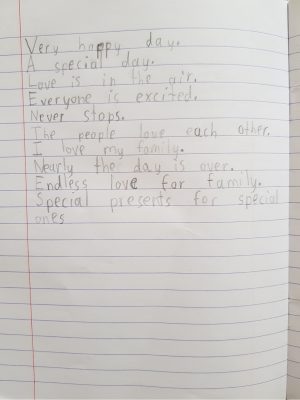 Very happy day.
A special day.
Love is in the air.
Everyone is excited.
Never stops.
The people love each other.
I love my family.
Nearly the day is over.
Endless love for family.
Special presents for special
ones